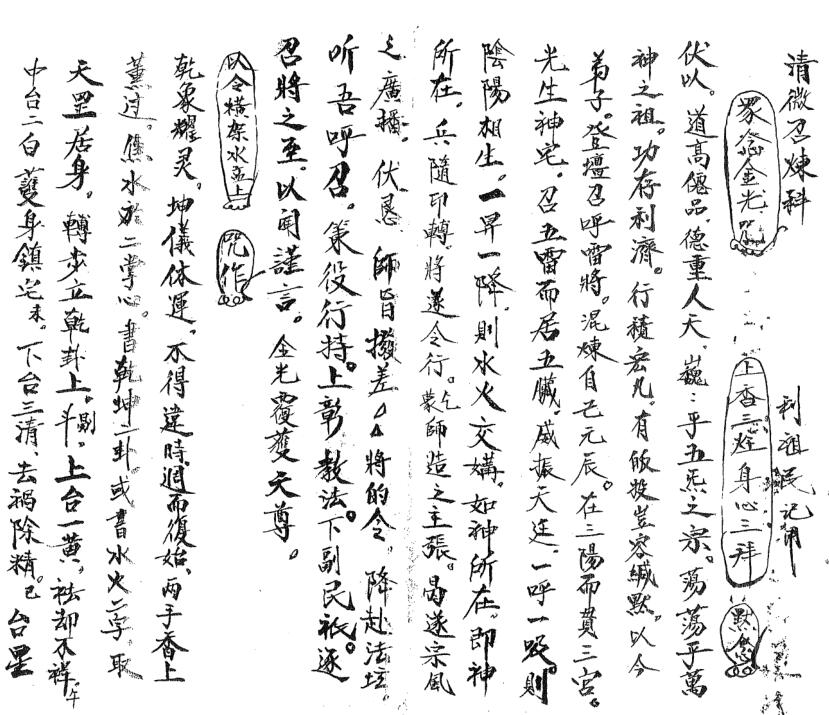 清微召煉科 利祖民記用
眾念金光咒 上香三炷身心三拜 默念
伏以。道高僊品、德重人天、巍〻乎五炁之宗。蕩蕩乎萬
神之祖。功存利濟。行積宏凡。有皈投豈容緘默。以今
弟子。登壇召呼雷將。混煉自己元辰。在三陽而貫三宮。
光生神宅。召五雷而居五臟。威振天廷。一呼一吸。則
陰陽相生。一昇一降。則水火交媾。如神所在。即神
所在。兵隨印轉。將遂令行。乞蒙師造之主張。曷遂宗風
之廣播。伏愚 師旨撥差△△將的令。降赴法坛。
听吾呼召。策役行持。上彰教法。下副民祇。逐
召將之至。以聞謹言。 全光覆護天尊。
以令橫架水盂上 咒作
乾象耀灵。坤儀体運。不得違時。週而復始。兩手香上
薰过。傾水於二掌心。書乾坤二卦。或書水火二字。取
天罡居身。轉步立乾卦上。斗剔。上台一黃。祛却不祥。午
中台二白 護身鎮宅未。下台三清、去禍除精。巳 台星